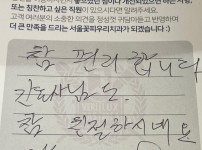 또는 칭찬하고 싶은 직원이 있으시다면 알려주세요.
고객 여러분의 소중한 의견을 정성껏 귀담아듣고 반영하여
더 큰 만족을 드리는 서울꽃피우리치과가 되겠습니다 :)
참 편리합니다
간호사님도
참 친절하시네요